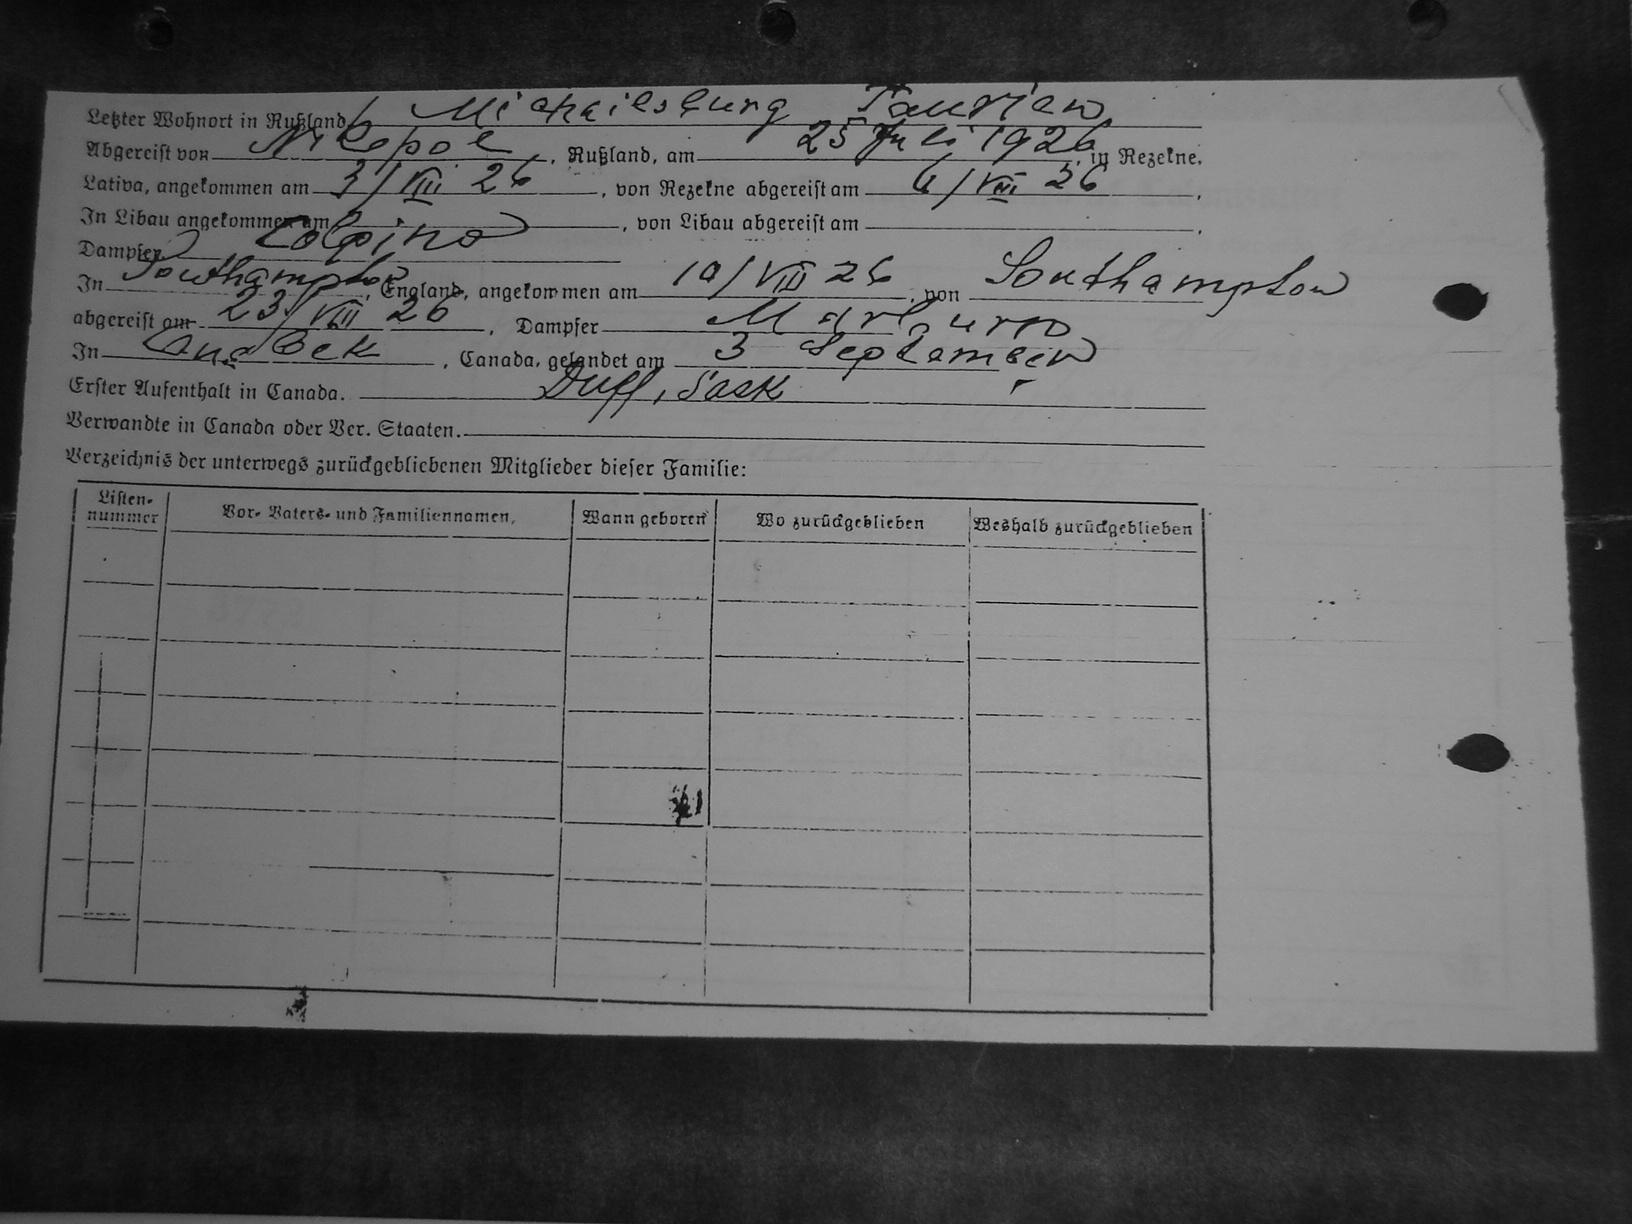 Letzter Wohnort in Rußland Michailsburg Taurien
Abgereist von Nikopol, Rußland, am 25 Juli 1926, in Rezekne,
Lativa, angekommen am 3/VIII 26, von Rezekne abgereist am 6/VIII 26,
In Libau angekommen am, von Libau abgereist am,
Dampfer Kolpino
In Southampton, England, angekommen am 10/VIII 26, von Southampton
abgereist am 23/VIII 26, Dampfer Marburn
In, Canada, gelandet am 3 September
Erster Aufenthalt in Canada. Duff, Sask
Verwandte in Canada oder Ver. Staaten.
Verzeichnis der unterwegs zurückgebliebenen Mitglieder dieser Familie:
Listen-nummer Vor- Vaters- und Familiennamen, Wann geboren Wo zurückgeblieben Weshalb zurückgeblieben